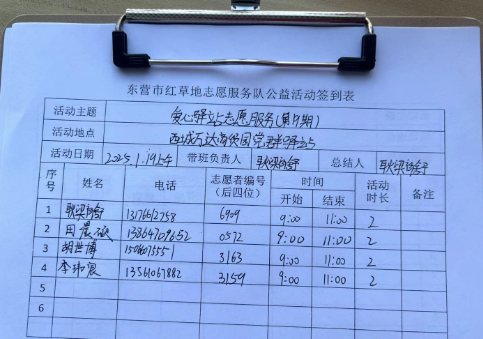 东营市红草地志愿服务队公益活动签到表
活动主题 爱心驿站志愿服务(第9期)
活动地点 西城万达海信国党群驿站
活动日期 2025.1.19上午 带班负责人 耿梁 总结人 耿梁
序号 姓名 电话 志愿者编号(后四位) 时间 开始 结束 活动时长 备注
1 耿梁 6909 9:00 11:00 2
2 田晨 0572 9:00 11:00 2
3 胡世博 3163 9:00 11:00 2
4 李 13561067882 3159 9:00 11:00 2
5
6